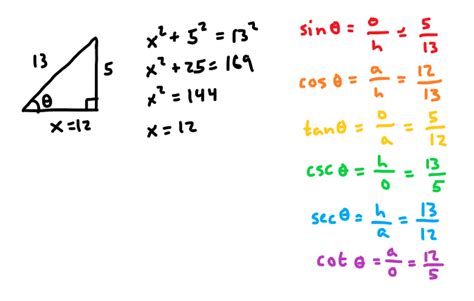 13
5
θ
x=12
x² + 5² = 13²
x² + 25 = 169
x² = 144
x = 12
sin θ = o/h = 5/13
cos θ = a/h = 12/13
tan θ = o/a = 5/12
csc θ = h/o = 13/5
sec θ = h/a = 13/12
cot θ = a/o = 12/5